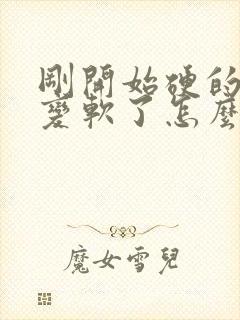 剛開始硬的
變軟了怎麼
魔女雪兒